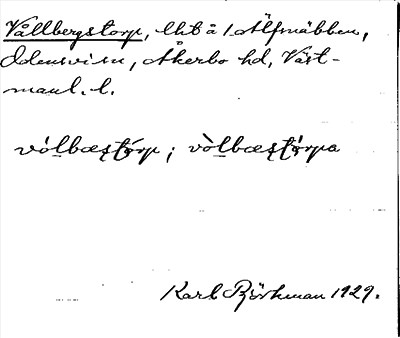 Vållbergstorp, lht å 1 Älfnäbben,
Odensvi sn, Åkerbo hd, Väst-
manl. l.
vólbæstórp; vòlbæstórpa
Karl Björkman 1929.